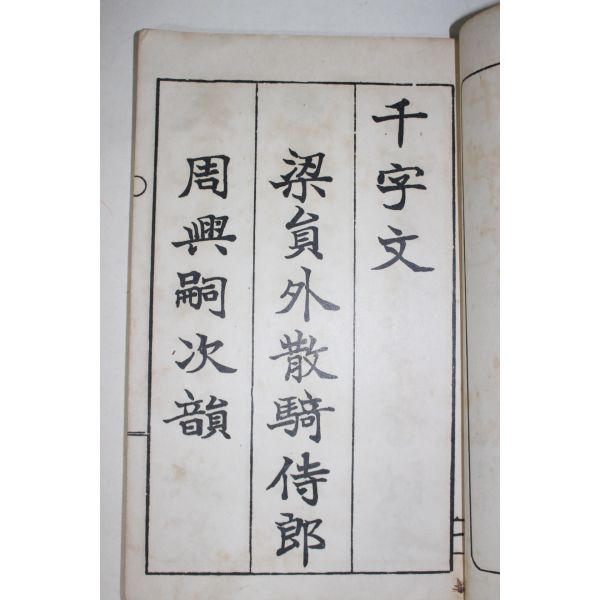 千字文
梁貟外散騎侍郎
周興嗣次韻